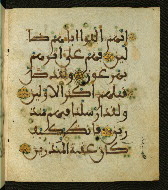 انهم الفوا اباءهم ضا
لين فهم على اثرهم
يهرعون ولقد ضل
قبلهم اكثر الاولين
ولقد ارسلنا فيهم منذ
رين فانظر كيف
كان عقبة المنذرين